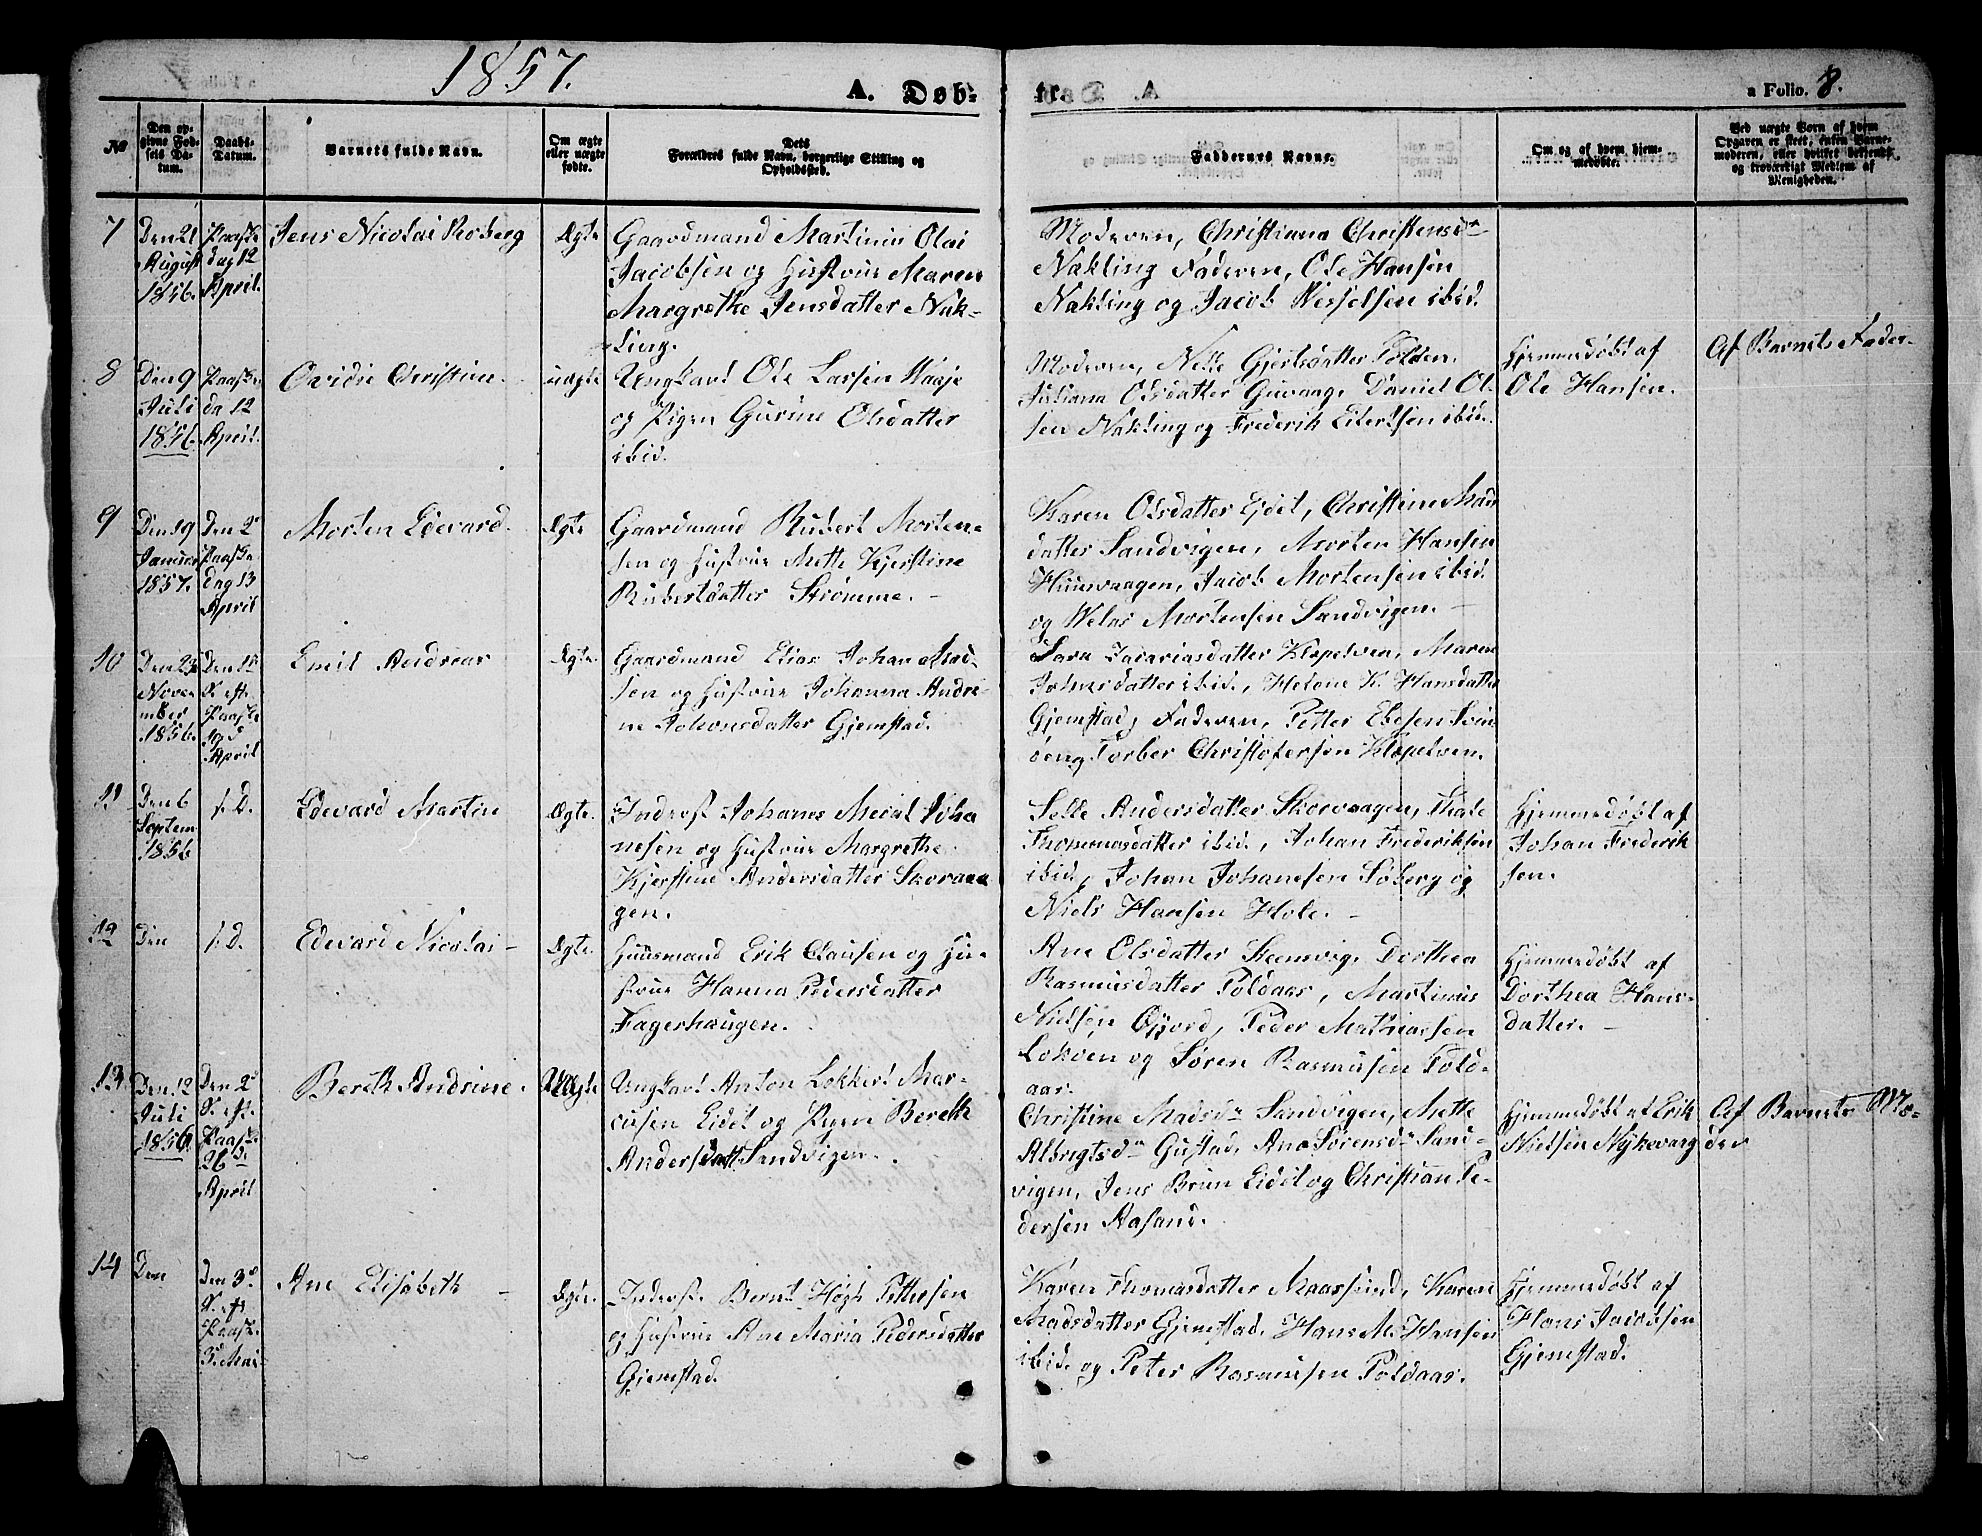 1857.
A. Døb-
te.
a Folio. 8.
No
Den op-
givne Fød-
sels Da-
tum.
Daabs-
Datum.
Barnets fulde Navn.
Om ægte
eller uægte
fødte.
Dets
Forældres fulde Navn, borgerlige Stilling og
Opholdssted.
Faddernes Navne.
Om og af hvem hjem-
medøbte.
Ved uægte Born af hvem
Opgaven er skeet, enten Barne-
moderen, eller hvilket bekjendt
og troværdigt Medlem af
Menigheden.
7
Den 21
August
1856.
Paaske
dag 12
April.
Jens Nicolai Roberg
Ægte
Gaardmand Martinus Olai
Jacobsen og Hustrue Maren
Margrethe Jensdatter Nak-
ling.
Moderen, Christiana Christensdr
Nakling Faderen, Ole Hansen
Nakling og Jacob Wesselsen ibid.
8
Den 9
Juli
1856.
Paaske
da 12
April.
Ovidie Christian
uægte
Ungkarl Ole Larsen Haaje
og Pigen Gurine Olsdatter
ibid.
Moderen, Nelle Gjertsdatter Folden.
Juliana Olsdatter Guvaag, Daniel Ol-
sen Nakling og Frederik Eilertsen ibid.
Hjemmedøbt af
Ole Hansen.
Af Barnets Fader.
9
Den 19
Januar
1857.
Den 2
Paaske
dag 13
April
Morten Edevard
Ægte
Gaardmand Rubert Morten-
sen og Hustrue Mette Kjerstine
Rubertsdatter Strømme.
Karen Olsdatter Eidet, Christine Mads
datter Sandvigen, Morten Hansen
Huusvaagen, Jacob Mortensen ibid.
og Welas Mortensen Sandvigen.
10
Den 23
Novem
mber
1856.
Den 1st
S. eft.
Paaske
19d
April
Emil Andreas
Ægte.
Gaardmand Elias Johan Mad-
sen og Hustrue Johanna Andri-
ne Johansdatter Gjemstad.
Sara Zacariasdatter Klopelven, Maren
Johnsdatter ibid., Helene K. Hansdatter
Gjemstad, Faderen, Petter Ebesen Svin
øen og Torber Christofersen Klopelven.
11
Den 6
Septem
1856
s. D.
Edevard Martin
Ægte.
Inderst Johanes Meial Joha
nesen og Hustrue Margrethe
Kjerstine Andersdatter Skoraa
gen.
Selle Andersdatter Skorvaagen, Thale
Thommasdatter ibid., Johan Frederiksen
ibid., Johan Johansen Søberg og
Niels Hansen Hole.
Hjemmedøbt af
Johan Frederik
sen.
12
Den
s. D.
Edevard Nicolai
Ægte.
Huusmand Erik Clausen og Hu-
strue Hanna Pedersdatter
Fagerhaugen.
Ane Olsdatter Steensvig, Dorthea
Rasmusdatter Foldaas, Martinus
Nielsen Øjord, Peder Mathiassen
Lokøen og Søren Rasmusen Fold-
aas.
Hjemmedøbt af
Dorthea Hans-
datter.
13
Den 12
Juli
1856.
Den 2d
S. eft.
Paask.
26d
April
Bereth Andsine.
Uægte
Ungkarl Anton Lokkert Mar-
cusen Eidet og Pigen Bereth
Andersdatt Sandvigen.
Christine Madsdr Sandvigen, Mette
Albrigtsdr Gustad, Ane Sørensdr Sand-
vigen, Jens Brun Eidet og Christian Pe-
dersen Aasand.
Hjemmedøbt af Erik
Nielsen Nykevaag
Af Barnets Mo-
der
14
Den
Den 3d
S. eft.
Paask.
3d Mai
Ane Elisabeth
Ægte.
Inderst Bernt Høgh Pettersen
og Hustrue Ane Maria Pedersdatter
Gjemstad.
Karen Thomasdatter Maassund, Karen
Madsdatter Gjemstad, Hans M. Hansen
ibid. og Peter Rasmusen Foldaas.
Hjemmedøbt af
Hans Jacobsen
Gjemstad.